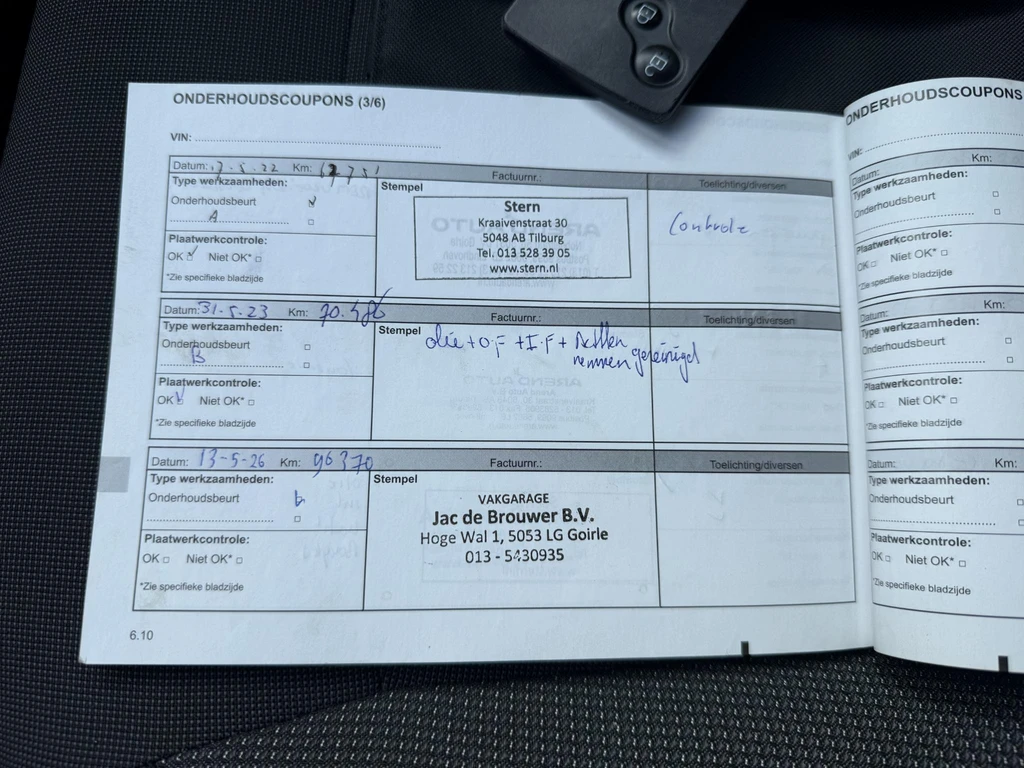 ONDERHOUDSCOUPONS (3/6)
VIN:
Datum: 17-5-22 Km:
Factuurnr.:
Toelichting/diversen
Type werkzaamheden:
Onderhoudsbeurt
A
Plaatwerkcontrole:
OK Niet OK*
*Zie specifieke bladzijde
Stempel
Stern
Kraaivenstraat 30
5048 AB Tilburg
Tel. 013 528 39 05
www.stern.nl
Controle
Datum: 31-5-23 Km: 70.486
Factuurnr.:
Toelichting/diversen
Type werkzaamheden:
Onderhoudsbeurt
B
Plaatwerkcontrole:
OK Niet OK*
*Zie specifieke bladzijde
Stempel
olie + O.F + I.F +
remmen gereinigd
Datum: 13-5-26 Km: 96370
Factuurnr.:
Toelichting/diversen
Type werkzaamheden:
Onderhoudsbeurt
Plaatwerkcontrole:
OK Niet OK*
*Zie specifieke bladzijde
Stempel
VAKGARAGE
Jac de Brouwer B.V.
Hoge Wal 1, 5053 LG Goirle
013 - 5430935
6.10
ONDERHOUDSCOUPONS
VIN:
Datum: Km:
Type werkzaamheden:
Onderhoudsbeurt
Plaatwerkcontrole:
OK Niet OK*
*Zie specifieke bladzijde
Datum: Km:
Type werkzaamheden:
Onderhoudsbeurt
Plaatwerkcontrole:
OK Niet OK*
*Zie specifieke bladzijde
Datum: Km:
Type werkzaamheden:
Onderhoudsbeurt
Plaatwerkcontrole:
OK Niet OK*
*Zie specifieke bladzijde